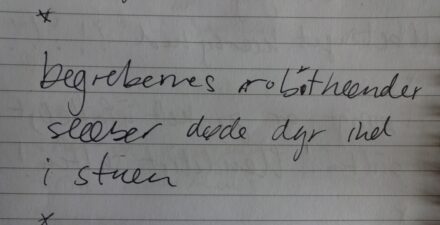 *
begrebernes robothænder
slæber døde dyr ind
i stuen
*